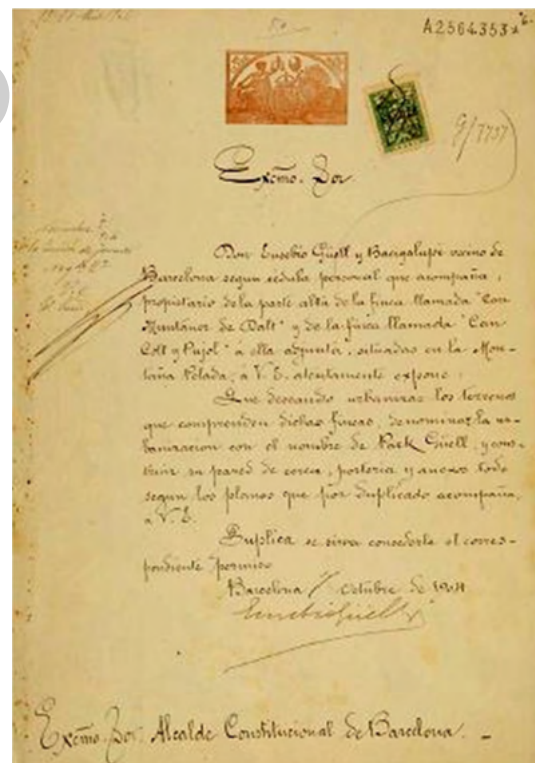 A2564353
G/7757
Excmo. Sor
Don Eusebio Güell y Bacigalupi vecino de
Barcelona segun cedula personal que acompaña,
propietario de la parte alta de la finca llamada "Can
Muntaner de Dalt" y de la finca llamada "Can
Coll y Pujol" á ella adjunta, situadas en la Mon-
taña Pelada, á V. E. atentamente expone:
Que deseando urbanizar los terrenos
que comprenden dichas fincas, denominar la ur-
banizacion con el nombre de Park Güell, y cons-
truir su pared de cerca, porteria y anexos todo
segun los planos que por duplicado acompaña,
á V. E.
Suplica se sirva concederle el corres-
pondiente permiso
Barcelona Octubre de 1904
Eusebio Güell
Excmo. Sor. Alcalde Constitucional de Barcelona. -